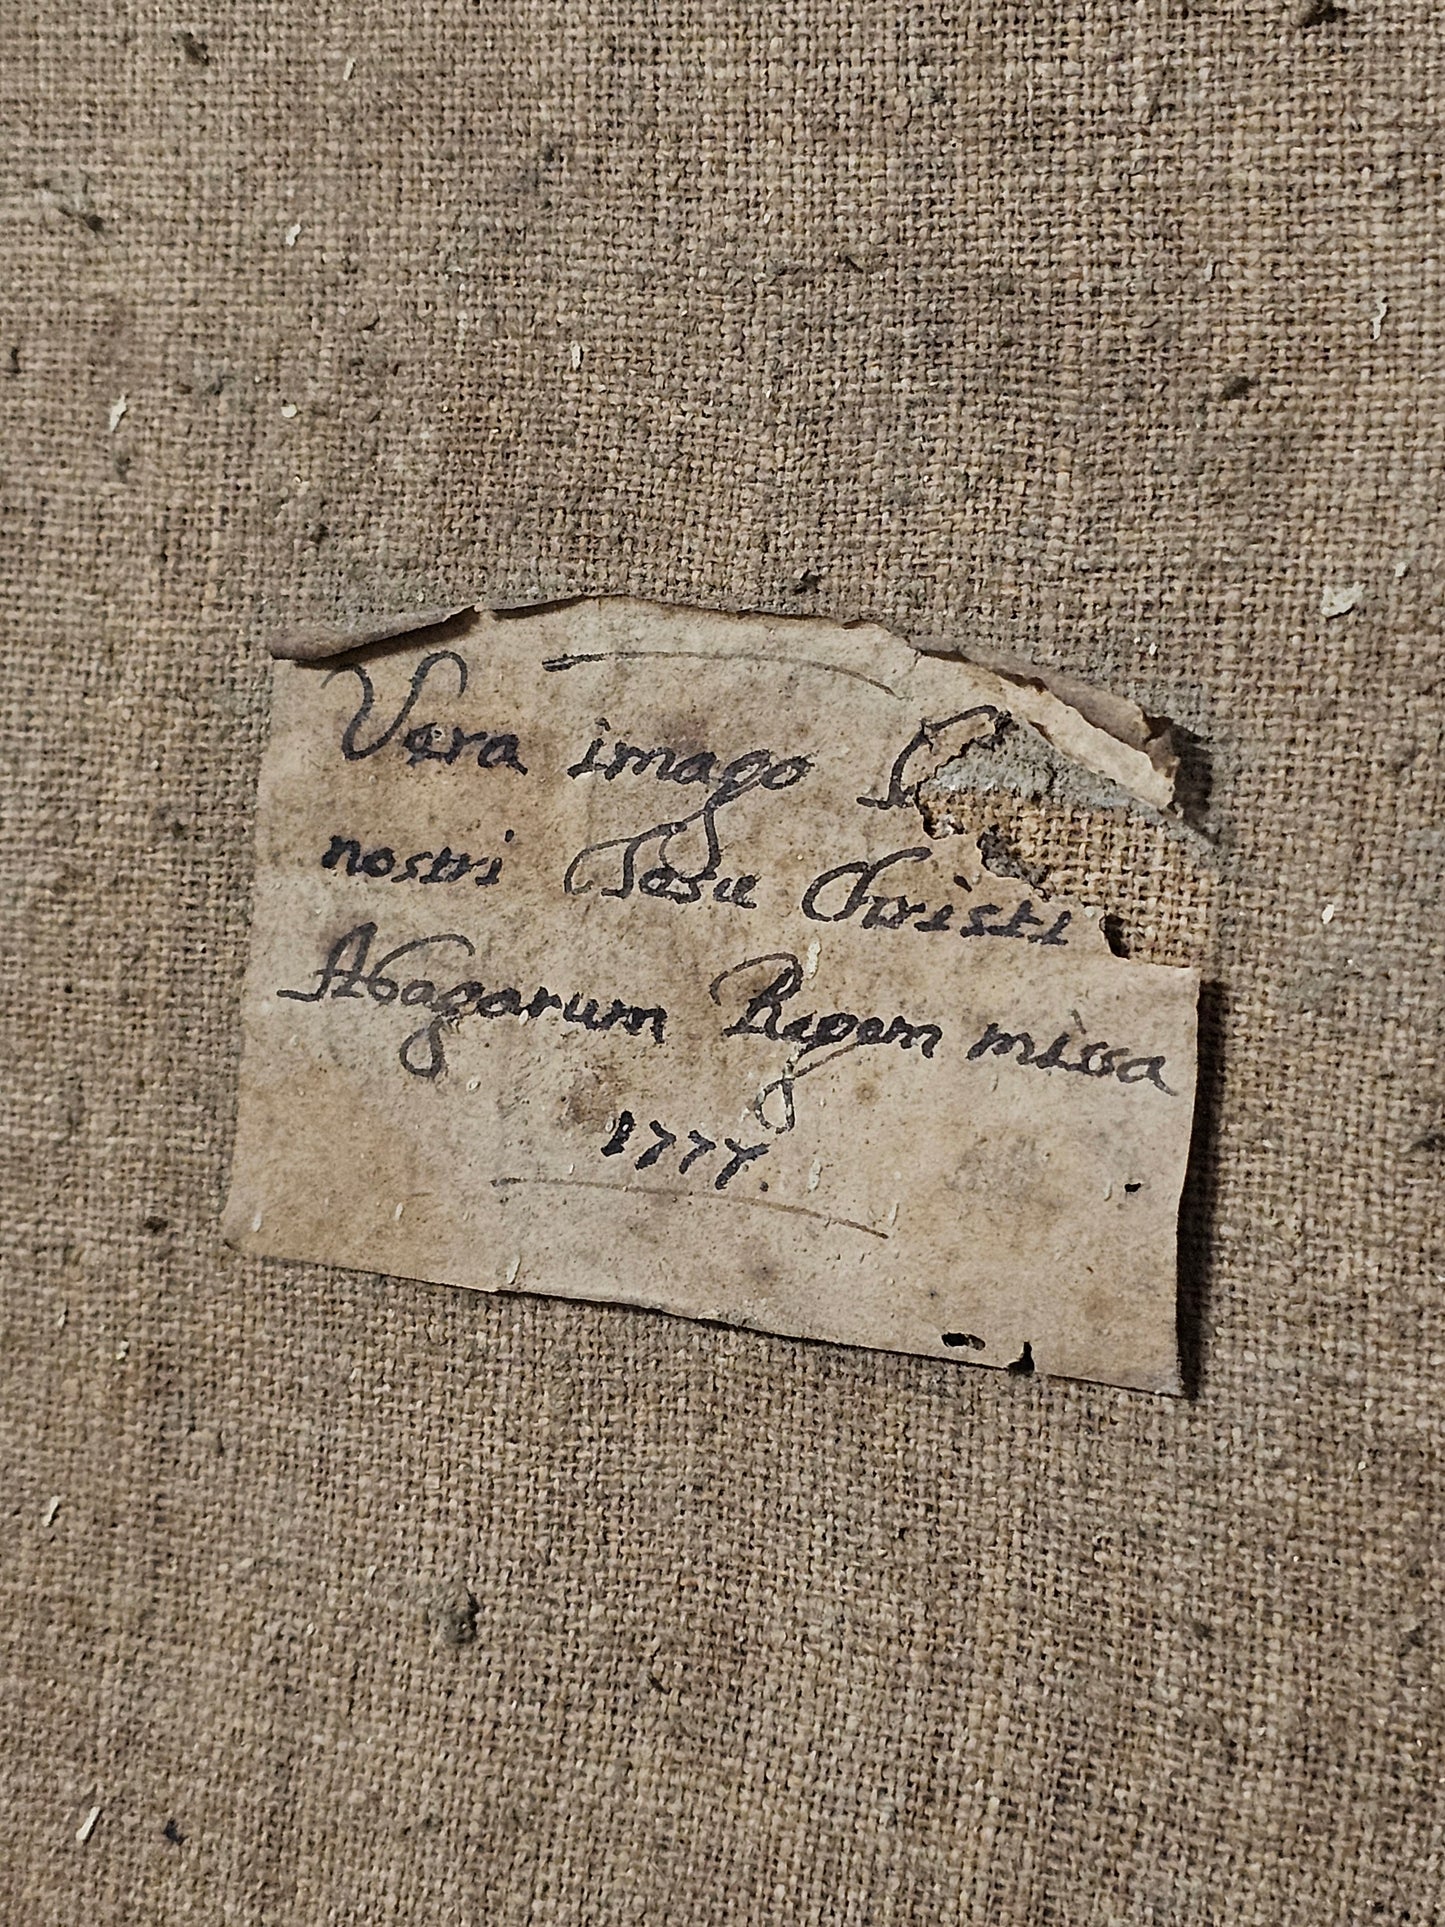 Vera imago
nostri Jesu Christi
Abagarum Regem missa
1777.